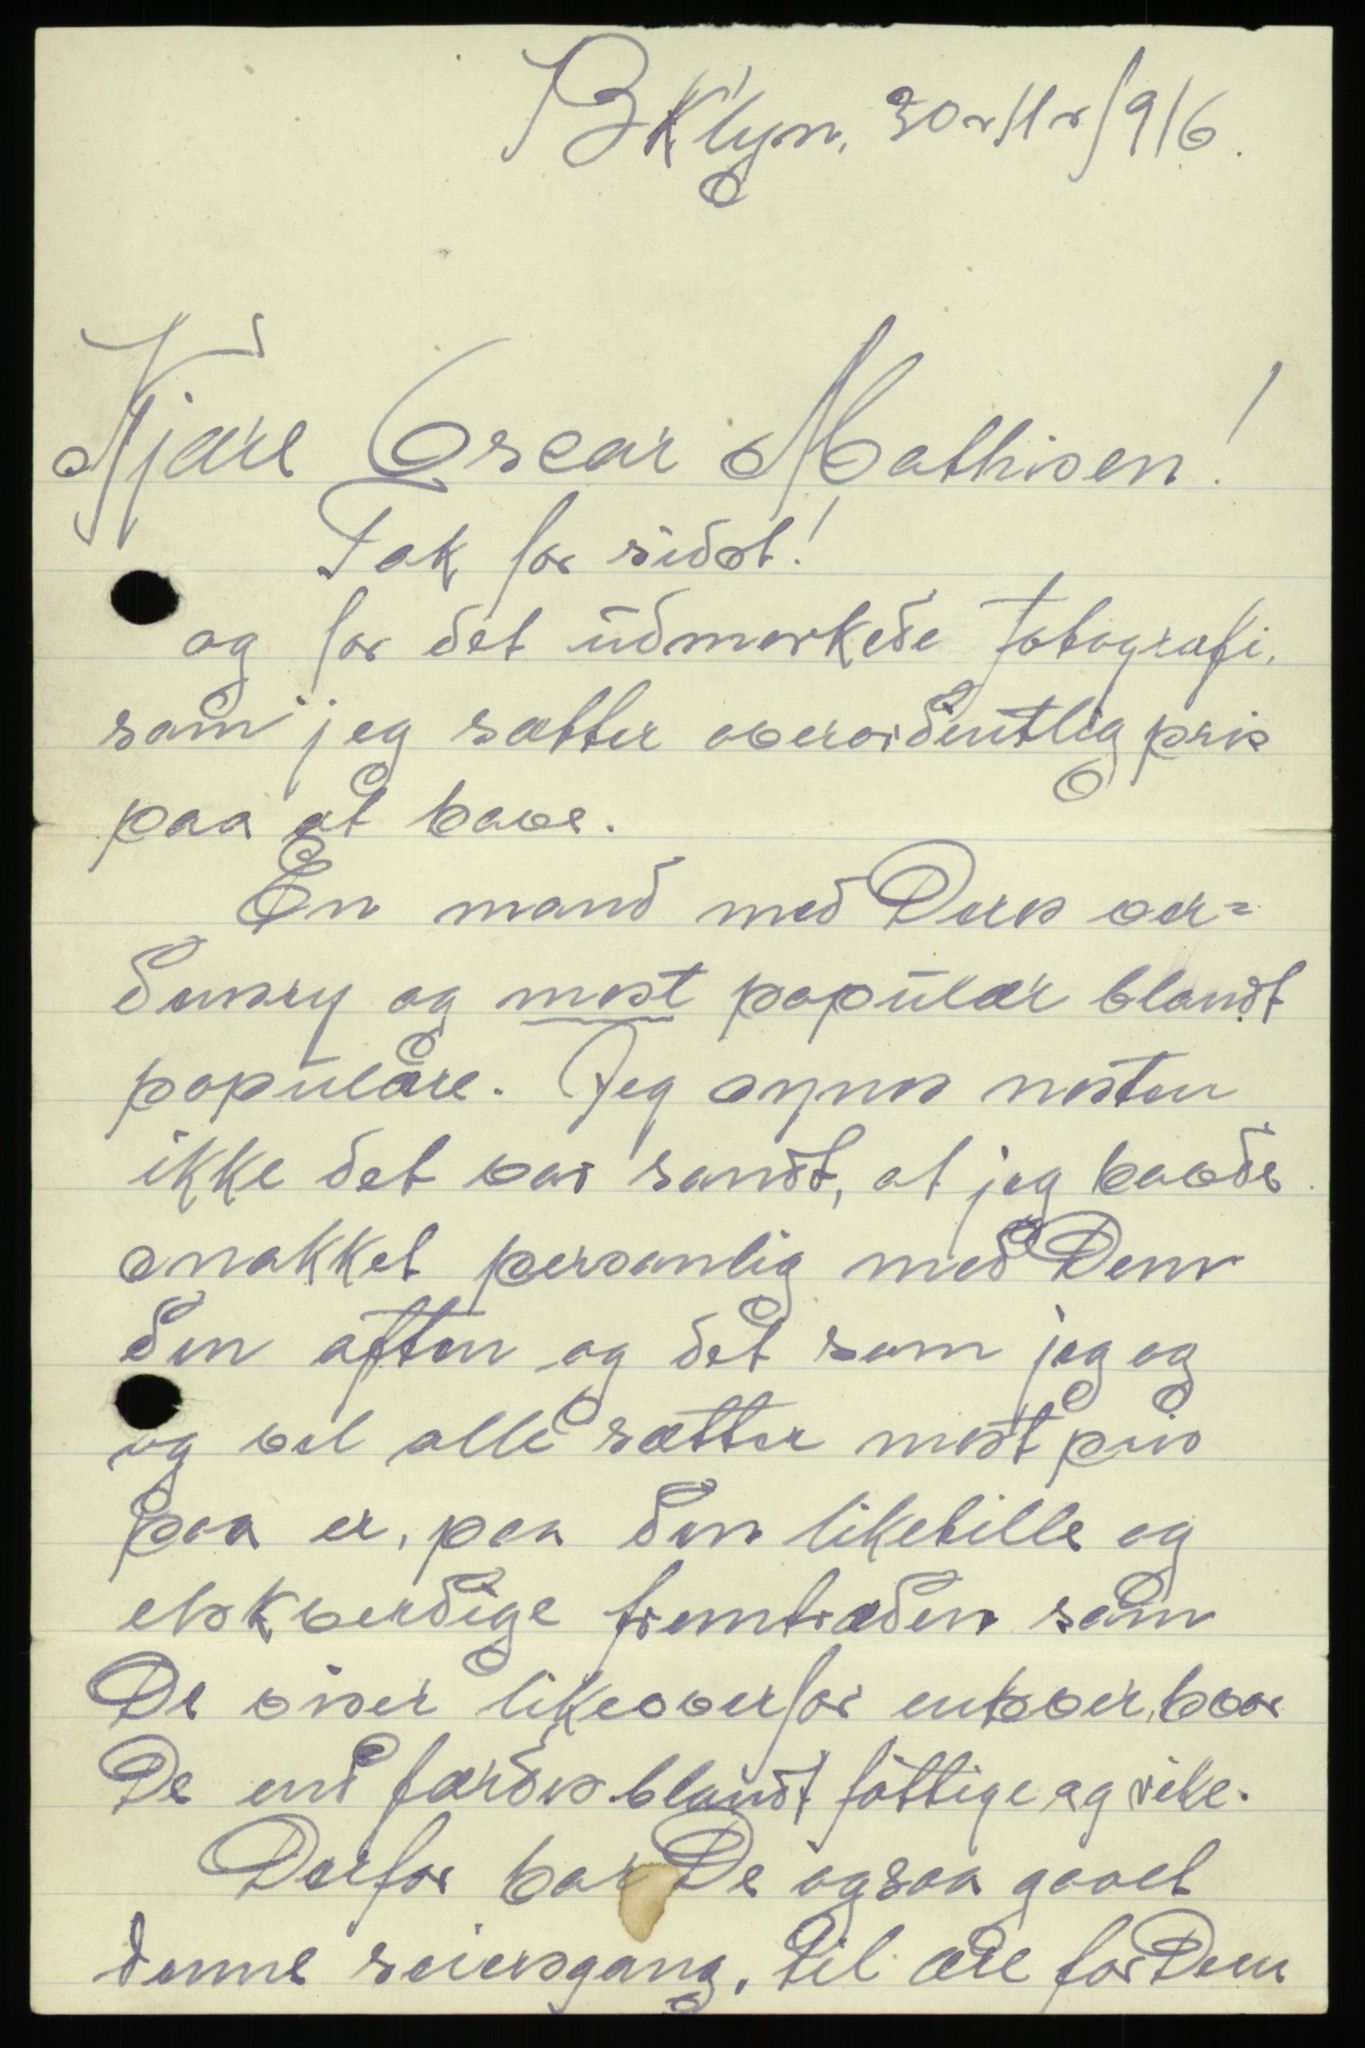 BKlyn, 30/1/1916.
Kjäre Oscar Mathisen!
Tak for sidst!
og for det udmerkede fotografi,
som jeg sætter overordentlig pris
paa at have.
En mand med Deres ver=
densry og mest populær blandt
populære. Jeg synes nesten
ikke det var sandt, at jeg havde
snakket personlig med Dem
den aften og det som jeg og
og vel alle sætter mest pris
paa er, paa den liketille og
elskverdige fremtræden som
De viser likeoverfor enhver, hvor
De end færdes blandt fattige og rike.
Derfor har De ogsaa gaaet
denne seiersgang, til ære for Dem